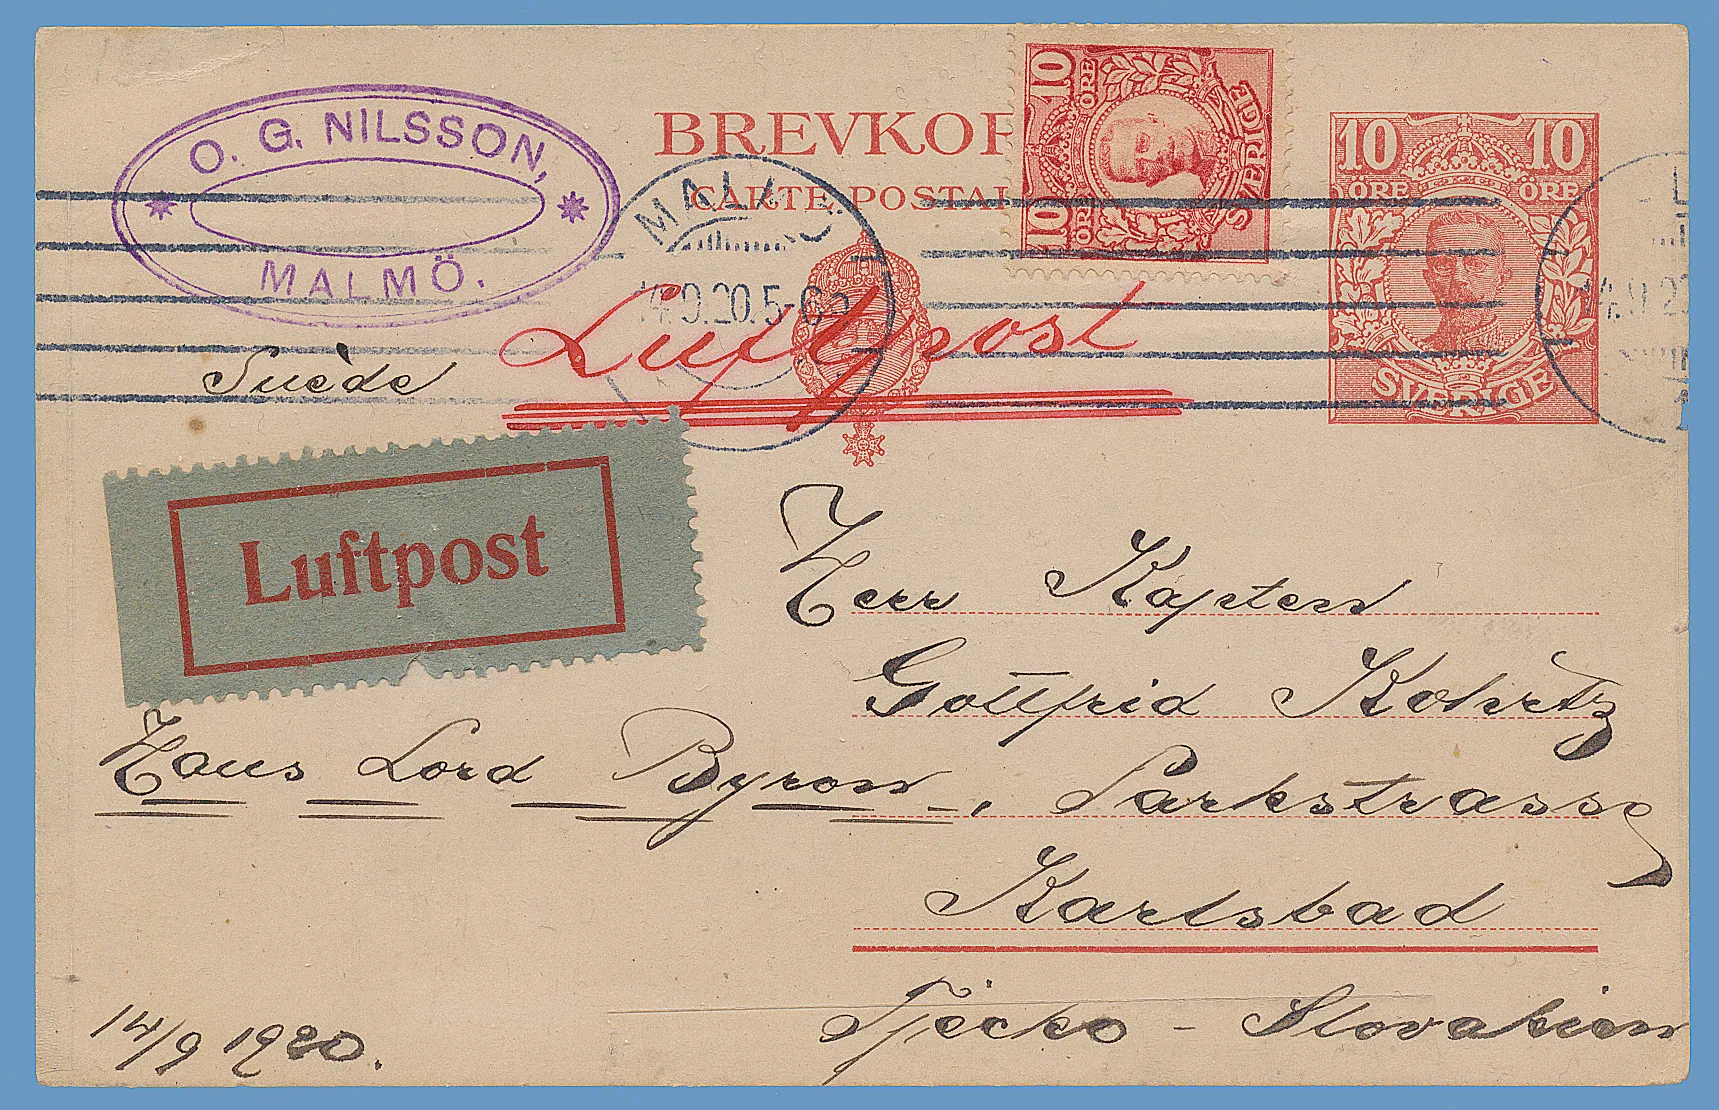 O. G. NILSSON,
MALMÖ.
BREVKOR
CARTE POSTAL
10 ÖRE 10 ÖRE
SVERIGE
10 ÖRE 10 ÖRE
SVERIGE
MALMÖ
14.9.20.5-6
Luftpost
Suède
Luftpost
Herr Kapten
Gottfrid Kohrtz
Haus Lord Byron, Parkstrasse
Karlsbad
Tjecko - Slovakien
14/9 1920.